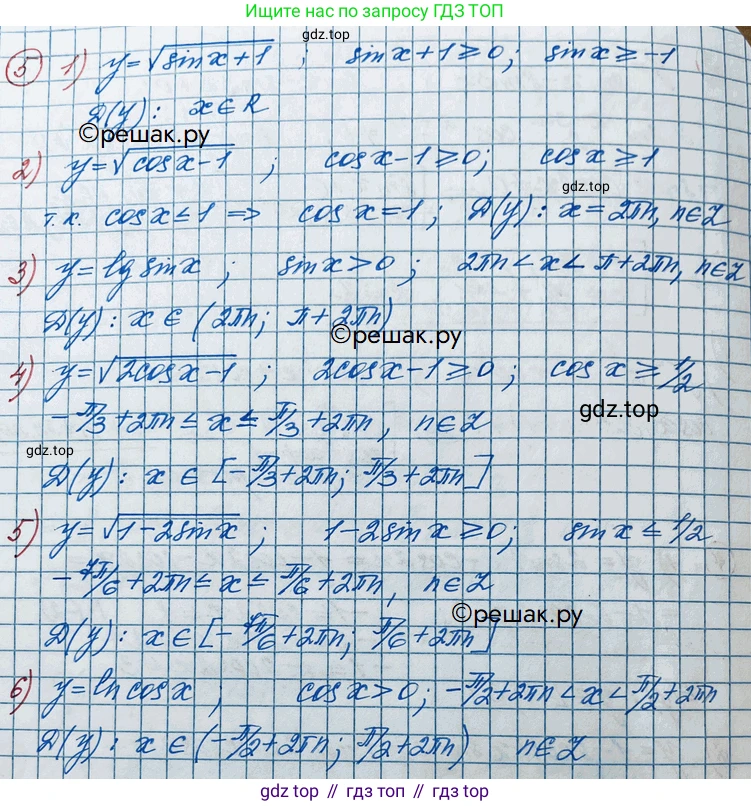 Ищите нас по запросу ГДЗ ТОП
gdz.top
⑤ 1) y=√(sinx+1) ; sinx+1≥0; sinx≥-1
D(y): x∈R
©решак.ру
2) y=√(cosx-1) ; cosx-1≥0; cosx≥1
gdz.top
т.к. cosx≤1 => cosx=1; D(y): x=2πn, n∈Z
3) y=lg sinx ; sinx>0 ; 2πn<x<π+2πn, n∈Z
D(y): x∈(2πn; π+2πn)
©решак.ру
4) y=√(2cosx-1) ; 2cosx-1≥0 ; cosx≥1/2
gdz.top
-π/3+2πn≤x≤π/3+2πn, n∈Z
gdz.top
D(y): x∈[-π/3+2πn; π/3+2πn]
5) y=√(1-2sinx) ; 1-2sinx≥0; sinx≤1/2
-7π/6+2πn≤x≤π/6+2πn, n∈Z
©решак.ру
D(y): x∈[-7π/6+2πn; π/6+2πn]
6) y=ln cosx ; cosx>0; -π/2+2πn<x<π/2+2πn
D(y): x∈(-π/2+2πn; π/2+2πn) n∈Z
gdz.top // гдз.топ // gdz.top